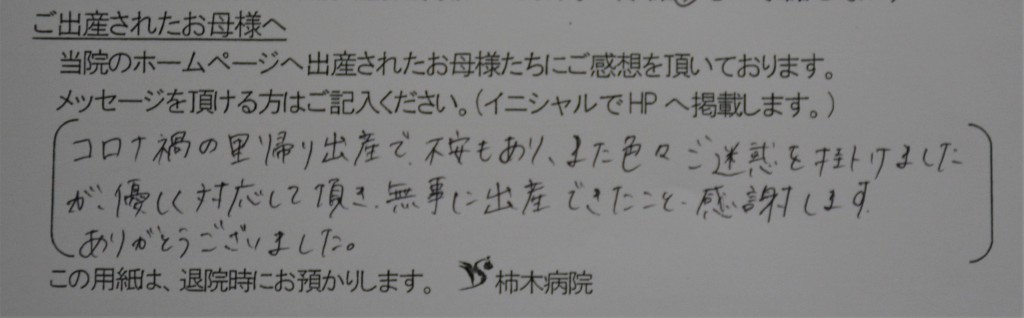 ご出産されたお母様へ
当院のホームページへ出産されたお母様たちにご感想を頂いております。
メッセージを頂ける方はご記入ください。(イニシャルでHPへ掲載します。)
コロナ禍の里帰り出産で、不安もあり、また色々ご迷惑を掛けました
が、優しく対応して頂き、無事に出産できたこと、感謝します。
ありがとうございました。
この用紙は、退院時にお預かりします。 柿木病院